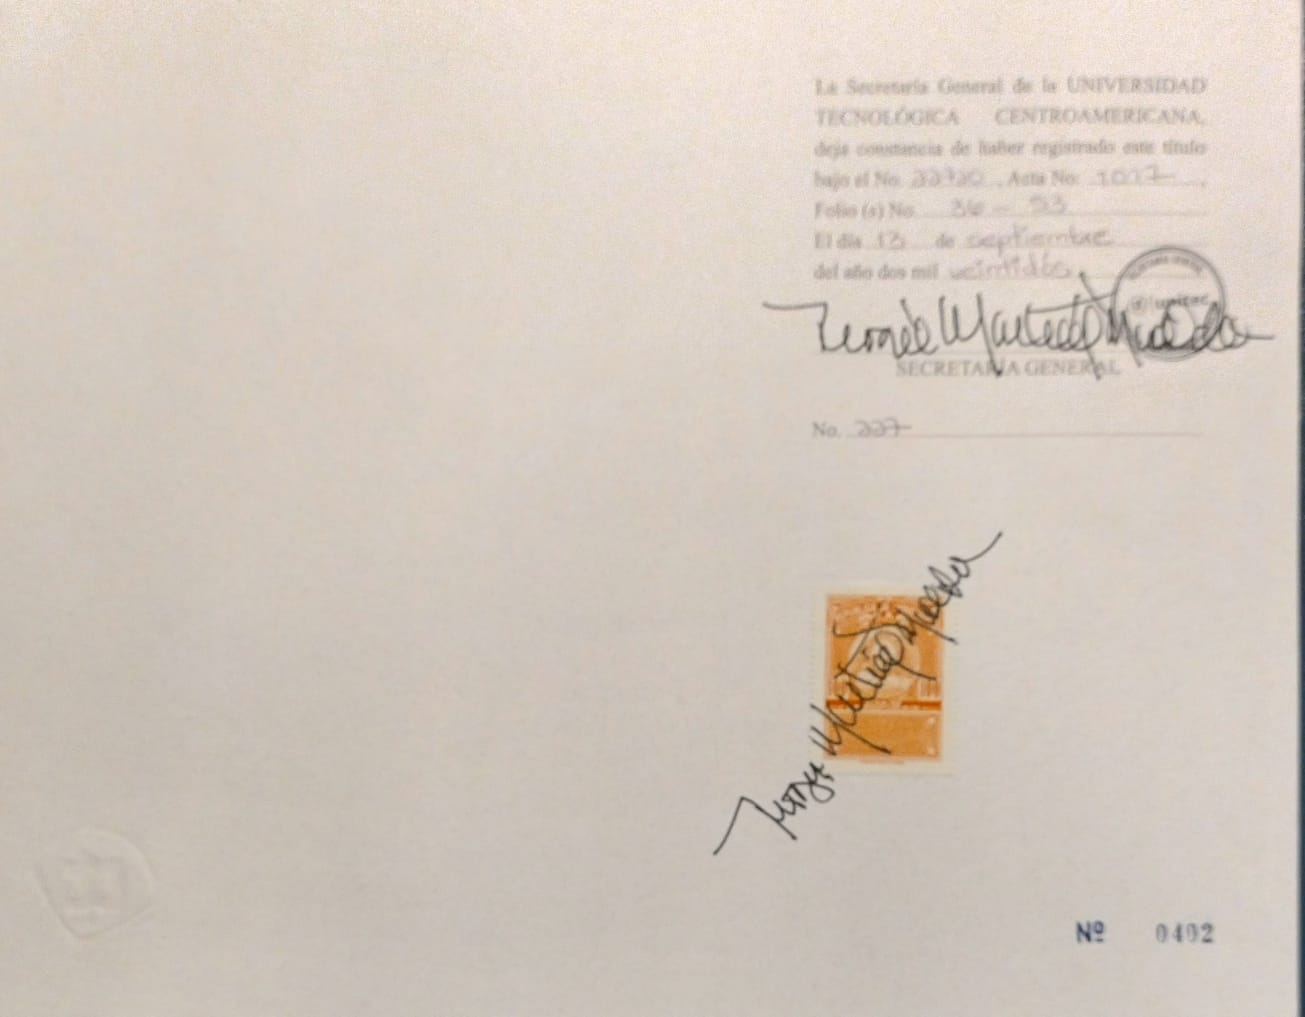 La Secretaría General de la UNIVERSIDAD
TECNOLÓGICA CENTROAMERICANA,
deja constancia de haber registrado este título
bajo el No. 22720 , Acta No: 1017 ,
Folio (s) No. 36 - 53
El día 13 de septiembre
del año dos mil veintidós.
unitec
SECRETARÍA GENERAL
No. 227
Nº 0402